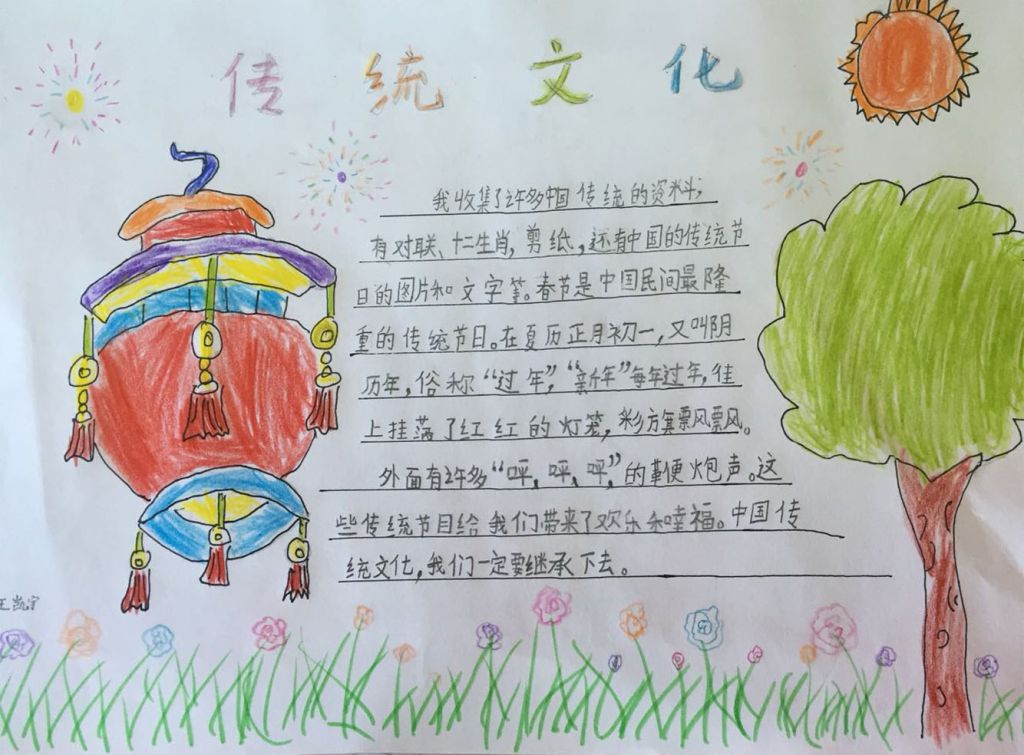 传统文化
我收集了许多中国传统的资料,
有对联、十二生肖,剪纸,还有中国的传统节
日的图片和文字等。春节是中国民间最隆
重的传统节日。在夏历正月初一,又叫阴
历年,俗称“过年”,“新年”每年过年,街
上挂满了红红的灯笼,彩旗飘飘。
外面有许多“呯,呯,呯”的鞭炮声。这
些传统节日给我们带来了欢乐和幸福。中国传
统文化,我们一定要继承下去。
王凯宇